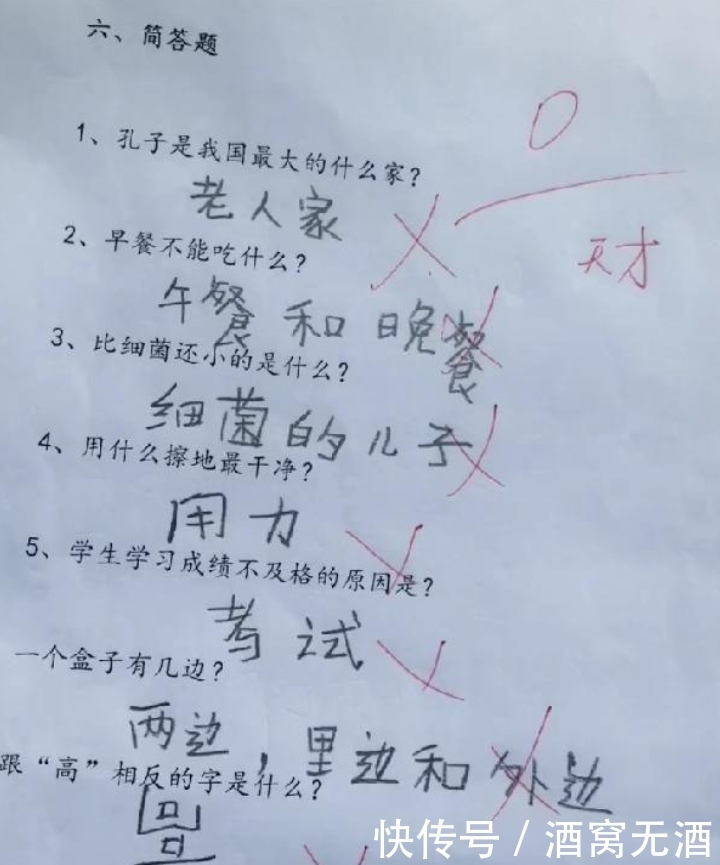 六、简答题
0
1、孔子是我国最大的什么家?
老人家
天才
2、早餐不能吃什么?
午餐和晚餐
3、比细菌还小的是什么?
细菌的儿子
4、用什么擦地最干净?
用力
5、学生学习成绩不及格的原因是?
考试
一个盒子有几边?
两边,里边和外边
跟“高”相反的字是什么?
快传号/酒窝无酒